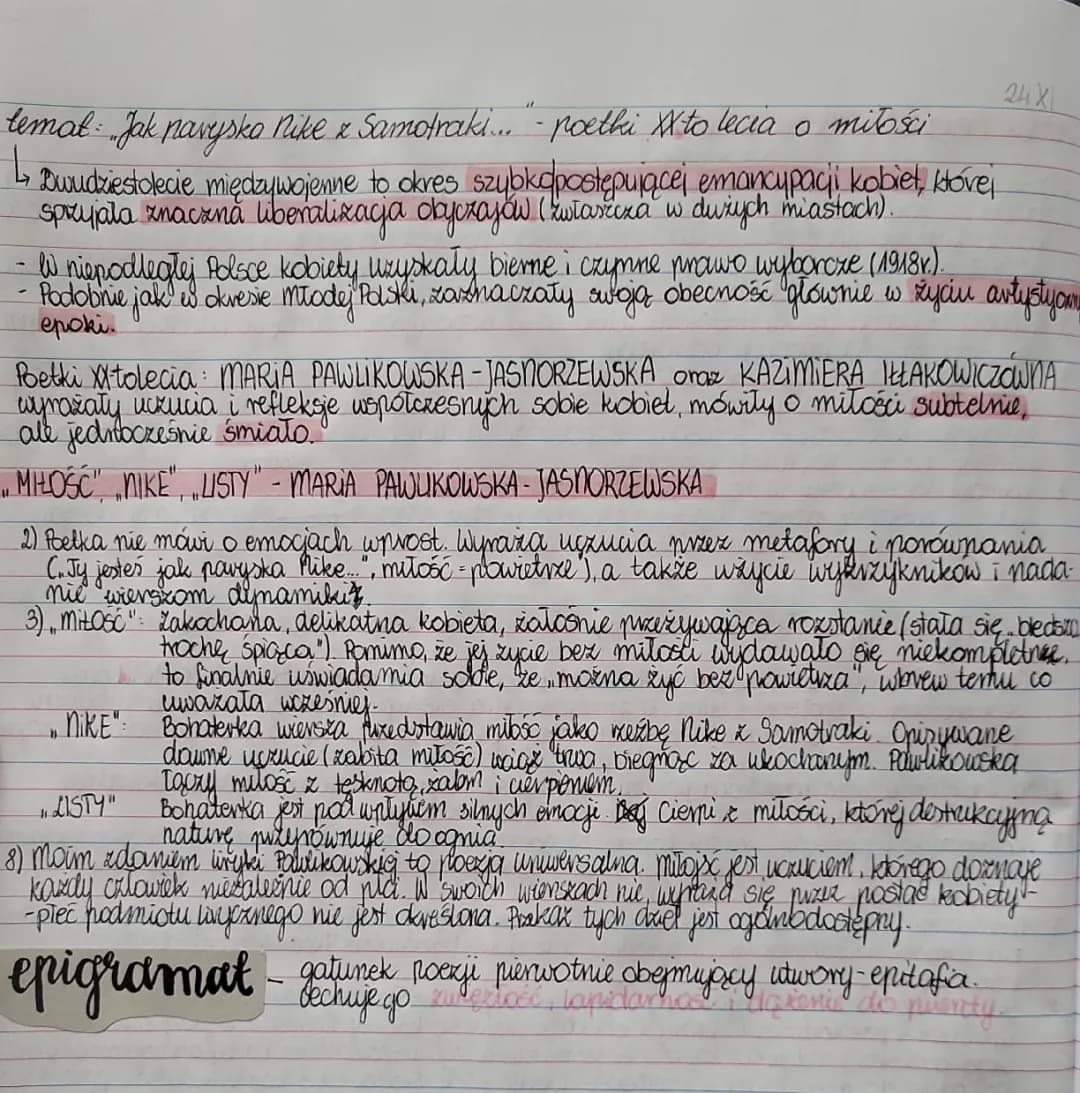 24 XI
temat: „Jak paryska Nike z Samotraki..." - poetki XX-to lecia o miłości
↳ Dwudziestolecie międzywojenne to okres szybko postępującej emancypacji kobiet, której
sprzyjała znaczna liberalizacja obyczajów (zwłaszcza w dużych miastach).
- W niepodległej Polsce kobiety uzyskały bierne i czynne prawo wyborcze (1918r.).
- Podobnie jak w okresie Młodej Polski, zaznaczały swoją obecność głównie w życiu artystyczn
epoki.
Poetki XX-tolecia: MARIA PAWLIKOWSKA-JASNORZEWSKA oraz KAZIMIERA IŁŁAKOWICZÓWNA
wyrażały uczucia i refleksje współczesnych sobie kobiet, mówiły o miłości subtelnie,
ale jednocześnie śmiało.
„MIŁOŚĆ", „NIKE", „LISTY" - MARIA PAWLIKOWSKA-JASNORZEWSKA
2) Poetka nie mówi o emocjach wprost. Wyraża uczucia przez metafory i porównania
(„Ty jesteś jak paryska Nike...", miłość = powietrze"), a także użycie wykrzykników i nada-
nie wierszom dynamiki
3) „MIŁOŚĆ": zakochana, delikatna kobieta, żałośnie przeżywająca rozstanie (stała się „bledsza
trochę śpiąca") Pomimo, że jej życie bez miłości wydawało się niekompletne,
to finalnie uświadamia sobie, że „można żyć bez powietrza", wbrew temu co
uważała wcześniej.
„NIKE": Bohaterka wiersza przedstawia miłość jako rzeźbę Nike z Samotraki. Opisywane
dawne uczucie (zabita miłość) wciąż trwa, biegnąc za ukochanym. Pawlikowska
łączy miłość z tęsknotą, żalem i cierpeniem.
„LISTY" Bohaterka jest pod wpływem silnych emocji. Cierpi z miłości, której destrukcyjną
naturę przyrównuje do ognia
8) Moim zdaniem liryki Pawlikowskiej to poezja uniwersalna. Miłość jest uczuciem, którego doznaje
każdy człowiek niezależnie od płci. W swoich wierszach nie wyraża się przez postać kobiety -
- płeć podmiotu lirycznego nie jest określona. Przekaz tych dzieł jest ogólnodostępny.
epigramat - gatunek poezji pierwotnie obejmujący utwory-epitafia.
Cechuje go zwięzłość, lapidarność i dążenie do puenty.